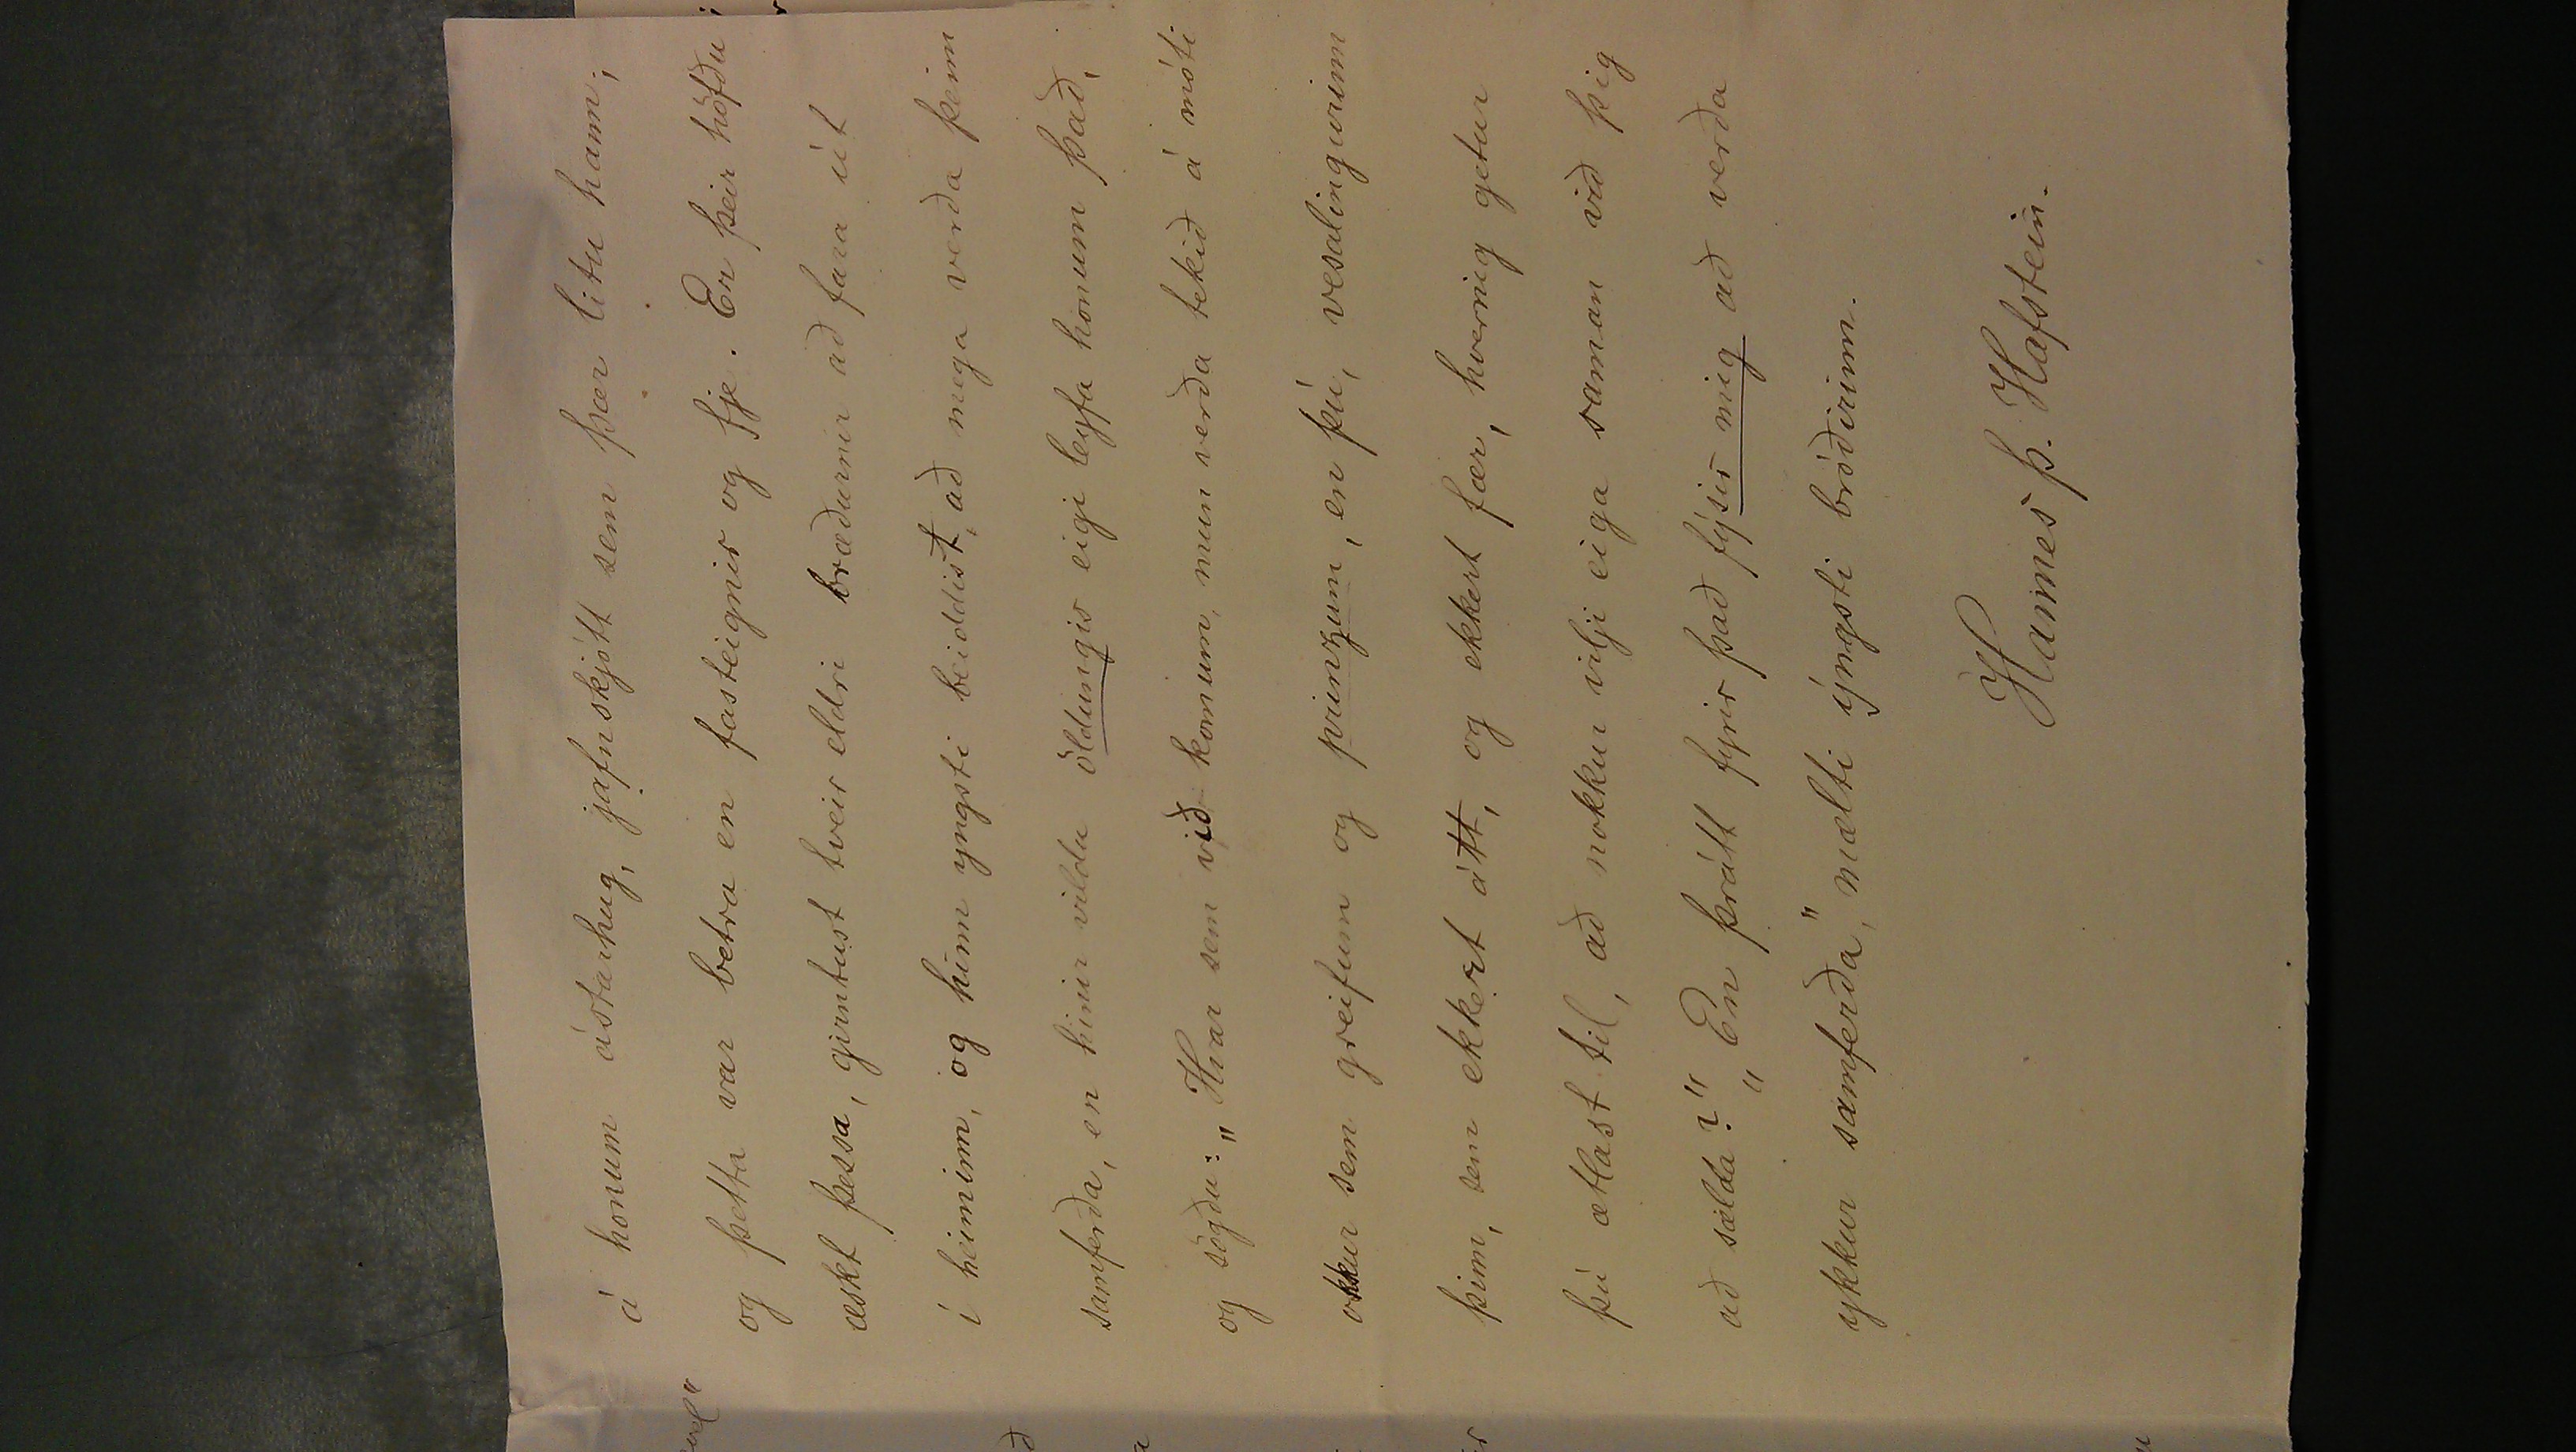 á honum ástarhug, jafnskjótt sem þær litu hann;
og þetta var betra en fasteignir og fje. Er þeir höfðu
æskt þessa, girntust tveir eldri bræðurnir að fara út
í heiminn, og hinn yngsti beiddist, að mega verða þeim
samferða, en hinir vildu öldungis eigi leyfa honum það,
og sögðu: „Hvar sem við komum, mun verða tekið á móti
okkur sem greifum og prinzum, en þú, vesalingurinn
þinn, sem ekkert átt, og ekkert fær, hvernig getur
þú ætlast til, að nokkur vilji eiga saman við þig
að sælda?“ „En þrátt fyrir það fýsir mig að verða
ykkur samferða,“ mælti ýngsti bróðirinn.
Hannes Þ. Hafstein.